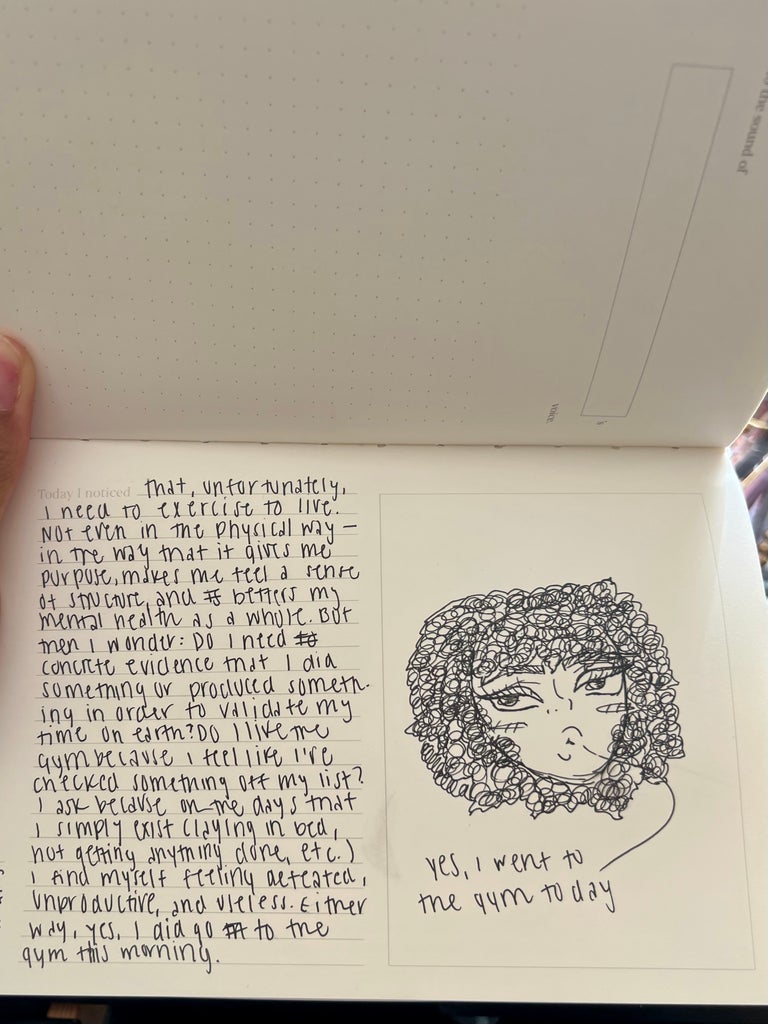 to the sound of
voice.
is
Today I noticed that, unfortunately,
I need to exercise to live.
Not even in the physical way —
in the way that it gives me
purpose, makes me feel a sense
of structure, and betters my
mental health as a whole. But
then I wonder: Do I need
concrete evidence that I did
something or produced someth-
ing in order to validate my
time on earth? Do I like the
gym because I feel like I've
checked something off my list?
I ask because on the days that
I simply exist (laying in bed,
not getting anything done, etc.)
I find myself feeling defeated,
unproductive, and useless. Either
way, yes, I did go to the
gym this morning.
yes, I went to
the gym today